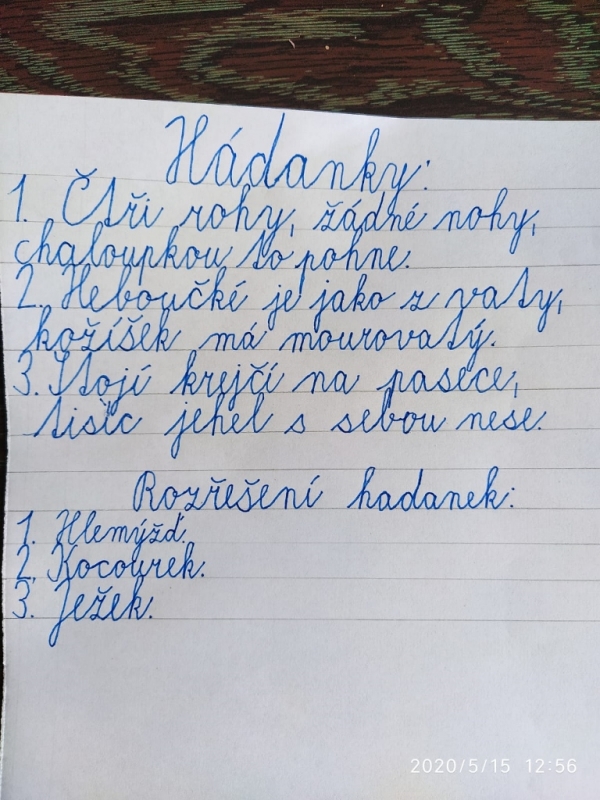 Hádanky:
1. Čtři rohy, žádné nohy,
chaloupkou to pohne.
2. Heboučké je jako z vaty,
kožíšek má mourovatý.
3. Stojí krejčí na pasece,
tisíc jehel s sebou nese.
Rozřešení hadanek:
1. Hlemýžď.
2. Kocourek.
3. Ježek.
2020/5/15 12:56